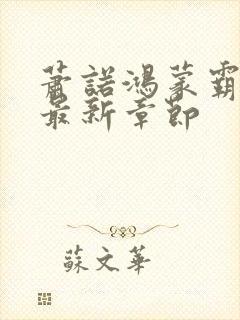 萧諾鴻蒙霸
最新章節
蘇文華